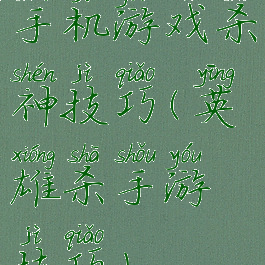 手机游戏杀
shén jì qiǎo yīng
神技巧(英
xióng shā shǒu yóu
雄杀手游
jì qiǎo
技巧)